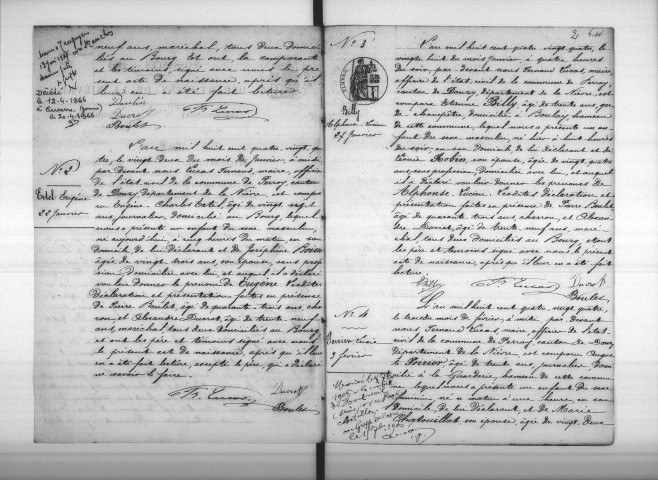 neuf ans, maréchal, tous deux domici
liés au Bourg et ont, la comparante
et les témoins signé avec nous le pré
sent acte de naissance, après qu'il
leur en a été fait lecture.
Ducrot
Boulet
Décédé
le 12-4-1966
à Auxerre (Yonne)
le 20-4-1966
N° 2
Eugène
22 janvier
L'an mil huit cent quatre vingt qua
tre, le vingt deux du mois de Janvier, à midi
par devant nous Lucas Fernand, maire, officier
de l'état civil de la commune de Perroy, canton
de Donzy, Département de la Nièvre, est compa
ru Eugène, Charles, âgé de vingt sept
ans, journalier, domicilié au Bourg, lequel
nous a présenté un enfant du sexe masculin,
né aujourd'hui, à cinq heures du matin en son
domicile, de lui déclarant et de Joséphine
âgée de vingt trois ans, son épouse, sans profes
sion, domiciliée avec lui, et auquel il a déclaré
vouloir donner le prénom de Eugène. Les dites
déclaration et présentation faites en présence
de Pierre Boulet, âgé de quarante trois ans, char
ron et Alexandre Ducrot, âgé de trente neuf
ans, maréchal, tous deux domiciliés au Bourg
et ont les père et témoins signé avec nous
le présent acte de naissance, après qu'il leur
en a été fait lecture, excepté le père, qui a déclaré
ne savoir le faire.
Ducrot
Boulet
2
N° 3
Billy
Alphonse Lucien
28 janvier
L'an mil huit cent quatre vingt quatre, le
vingt huit du mois janvier, à quatre heures
du soir, par devant nous Fernand Lucas, maire,
officier de l'état civil de la commune de Perroy,
canton de Donzy, département de la Nièvre, est
comparu Etienne Billy, âgé de trente ans, gar
de champêtre, domicilié à Boulay, hameau
de cette commune, lequel nous a présenté un en
fant du sexe masculin, né hier à huit heures
du soir, en son domicile, de lui déclarant et de
Robin, son épouse, âgée de vingt quatre
ans, sans profession, domiciliée avec lui, et auquel
il a déclaré vouloir donner les prénoms de
Alphonse Lucien. Les dites déclaration et
présentation faites en présence de Pierre Boulet
âgé de quarante trois ans, charron, et Alexan
dre Ducrot, âgé de trente neuf ans, maré
chal, tous deux domiciliés au Bourg, et ont
les père et témoins signé avec nous le présent
acte de naissance, après qu'il leur en a été fait
lecture.
Billy Ducrot
Boulet
N° 4
Lucie
3 février
L'an mil huit cent quatre vingt quatre,
le trois du mois de février, à midi, par devant
nous Fernand Lucas, maire, officier de l'état
civil de la commune de Perroy, canton de Donzy
département de la Nièvre, est comparu
âgé de trente ans, journalier, domi
cilié à la Guarderie, hameau de cette commu
ne, lequel nous a présenté un enfant du sexe
féminin, né ce matin à une heure, en son
domicile, de lui déclarant, et de Marie
Chatouillat son épouse, âgée de vingt deux